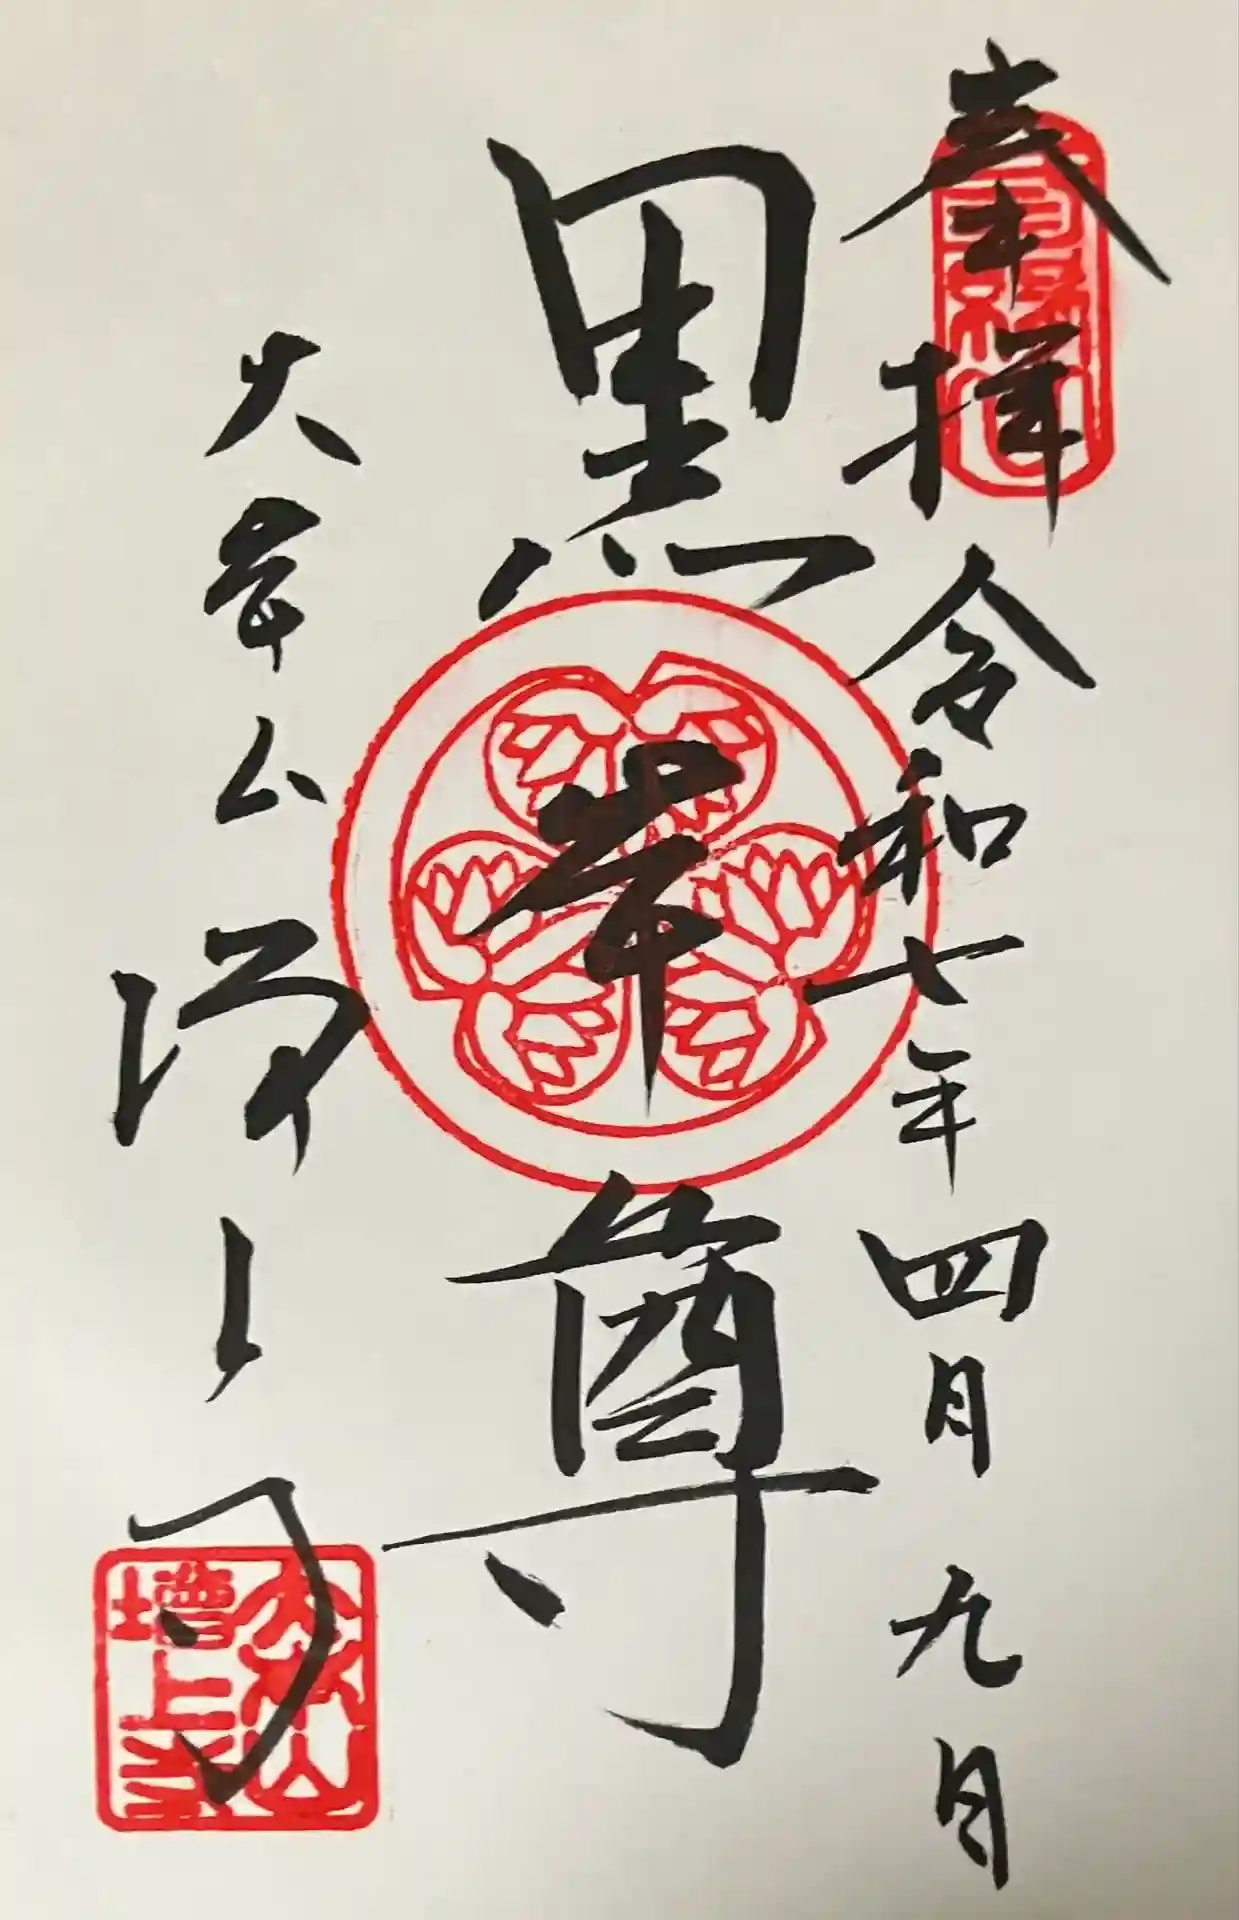 奉拝 令和七年四月九日
黒本尊
大本山 増上寺
三縁山
大本山
増上寺